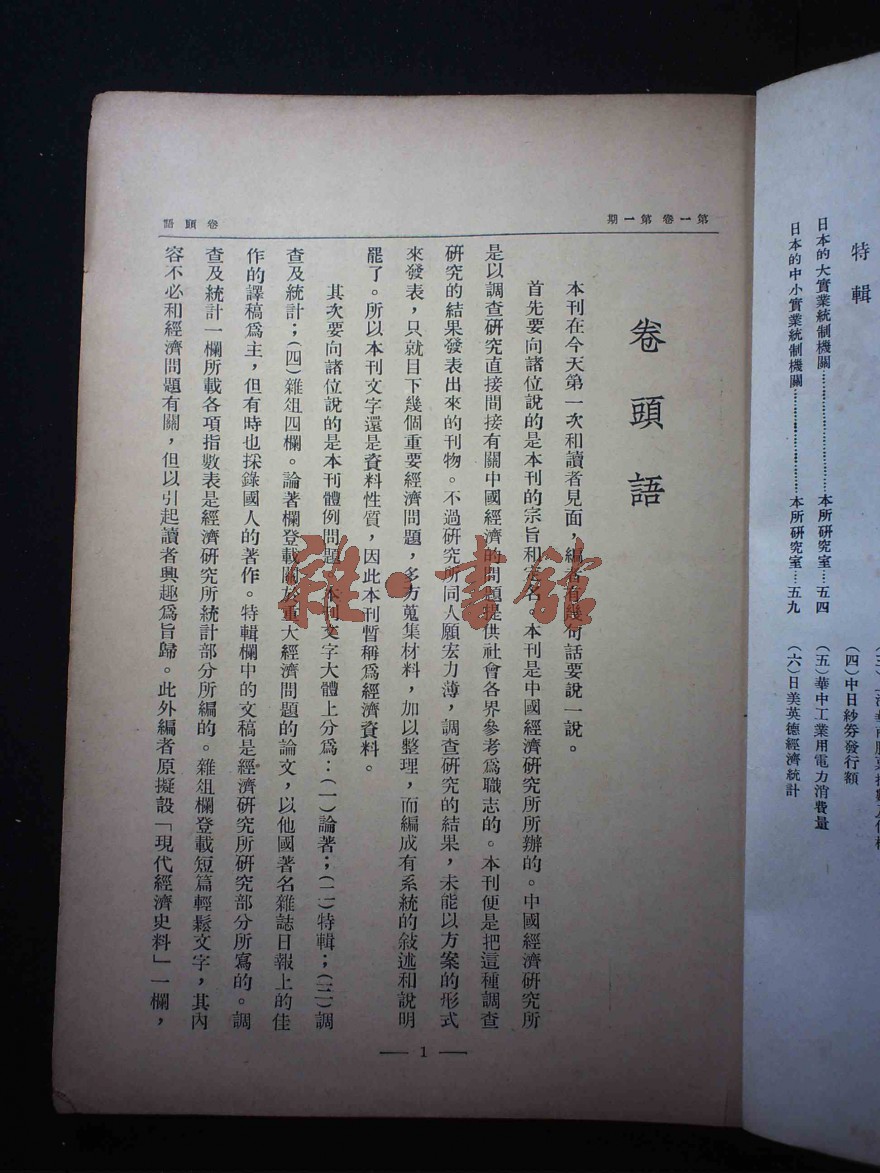 特輯
日本的大實業統制機關…………………本所研究室…五四
日本的中小實業統制機關………………本所研究室…五九
(四)中日紗券發行額
(五)華中工業用電力消費量
(六)日美英德經濟統計
第一卷第一期
卷頭語
卷頭語
本刊在今天第一次和讀者見面，編者有幾句話要說一說。
首先要向諸位說的是本刊的宗旨和定名。本刊是中國經濟研究所所辦的。中國經濟研究所
是以調查研究直接間接有關中國經濟的問題提供社會各界參考爲職志的。本刊便是把這種調查
研究的結果發表出來的刊物。不過研究所同人願宏力薄，調查研究的結果，未能以方案的形式
來發表，只就目下幾個重要經濟問題，多方蒐集材料，加以整理，而編成有系統的敍述和說明
罷了。所以本刊文字還是資料性質，因此本刊暫稱爲經濟資料。
其次要向諸位說的是本刊體例問題。本刊文字大體上分爲：(一)論著；(二)特輯；(三)調
查及統計；(四)雜俎四欄。論著欄登載關於重大經濟問題的論文，以他國著名雜誌日報上的佳
作的譯稿爲主，但有時也採錄國人的著作。特輯欄中的文稿是經濟研究所研究部分所寫的。調
查及統計一欄所載各項指數表是經濟研究所統計部分所編的。雜俎欄登載短篇輕鬆文字，其內
容不必和經濟問題有關，但以引起讀者興趣爲旨歸。此外編者原擬設「現代經濟史料」一欄，
— 1 —
雜·書館